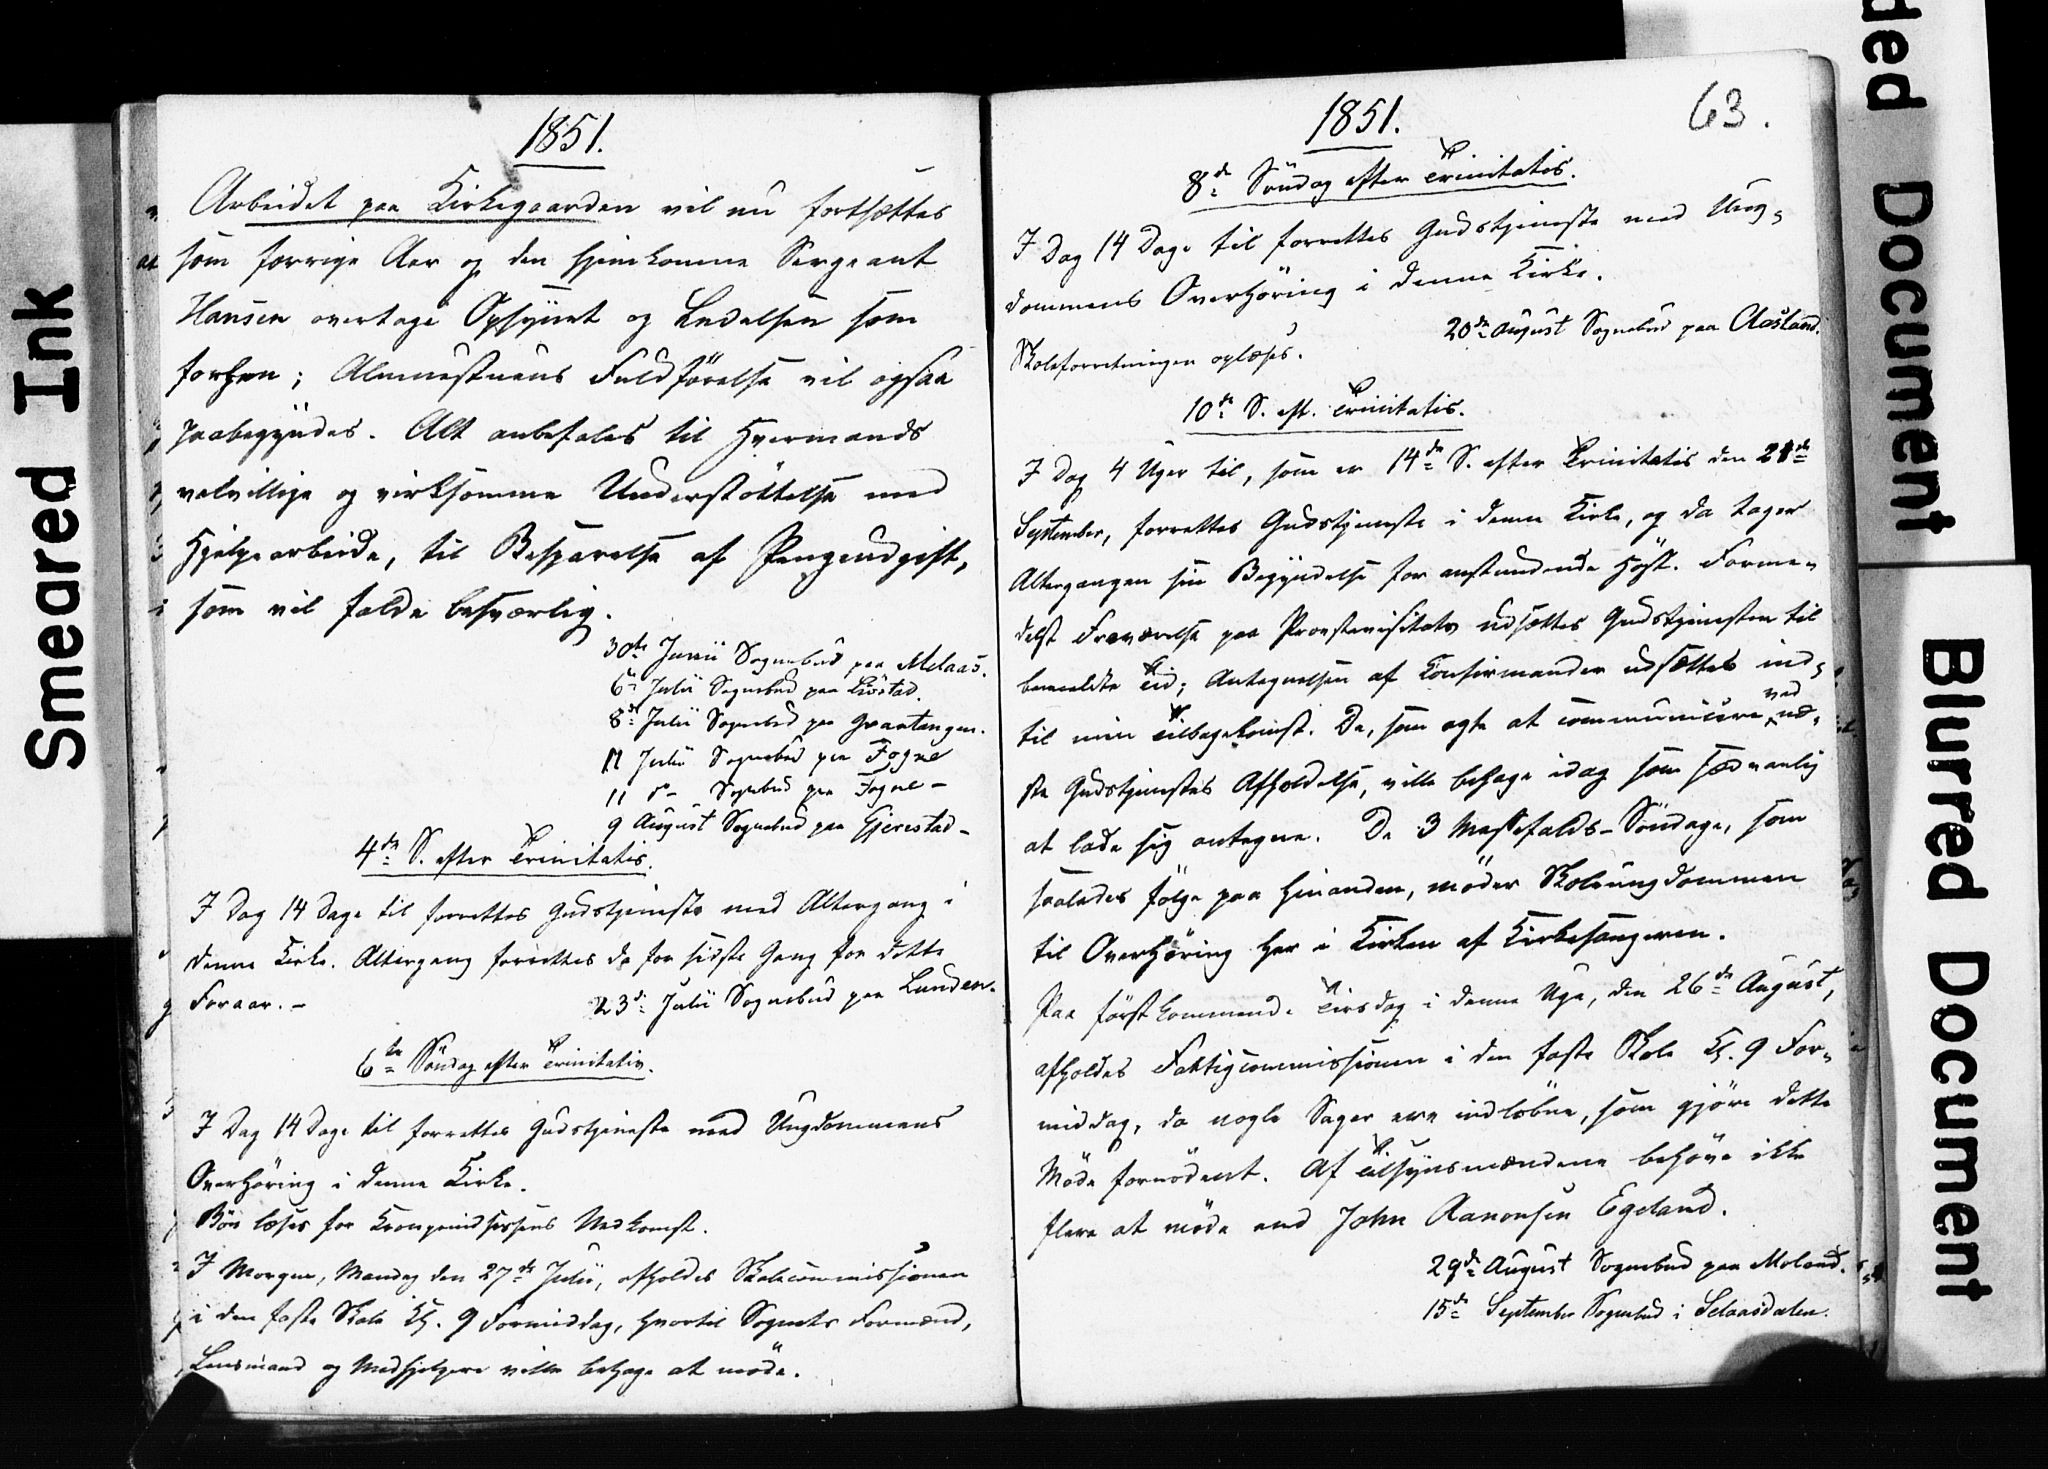 1851.
Arbeidet paa Kirkegaarden vil nu fortsættes
som forrige Aar og den hjemkomne Sergeant
Hansen overtage Opsynet og Ledelsen som
forhen; Almuestuens Fuldførelse vil ogsaa
paabegyndes. Alt anbefales til Hvermands
velvillige og virksomme Understøttelse med
Hjelpearbeide, til Besparelse af Pengeudgift,
som vil falde besværlig.
30te Junii Sognebud paa Melaas.
6te Julii Sognebud paa Løstad.
8de Julii Sognebud paa Gvartangen.
11 Julii Sognebud paa Fogne
11 do Sognebud paa Fogne -
9 August Sognebud paa Gjerestad -
4de S. efter Trinitatis.
I Dag 14 Dage til forrettes Gudstjeneste med Altergang i
denne Kirke. Altergang forrettes da for sidste Gang for dette
Foraar. -
23de Julii Sognebud paa Lunden.
6te Søndag efter Trinitatis.
I Dag 14 Dage til forrettes Gudstjeneste med Ungdommens
Overhøring i denne Kirke.
Bøn læses for Kronprindsessens Nedkomst.
I Morgen, Mandag den 27de Julii, afholdes Skolecommissionen
i den faste Skole Kl. 9 Formiddag, hvortil Sognets Formænd,
Lensmand og Medhjelpere ville behage at møde.
1851.
63.
8de Søndag efter Trinitatis.
I Dag 14 Dage til forrettes Gudstjeneste med Ung-
dommens Overhøring i denne Kirke.
20de August Sognebud paa Aasland.
Skoleforretningen oplæses.
10de S. eft. Trinitatis.
I Dag 4 Uger til, som er 14de S. efter Trinitatis den 21de
September, forrettes Gudstjeneste i denne Kirke, og da tager
Altergangen sin Begyndelse for anstundende Høst. Forme-
delst Fraværelse paa Provstevisitats udsættes Gudstjenesten til
bemeldte Tid; Antegnelsen af Konfirmander udsættes ind-
til min Tilbagekomst. De, som agte at communicere ved næ-
ste Gudstjenestes Afholdelse, ville behage idag som sædvanlig
at lade sig antegne. De 3 Messefalds-Søndage, som
saaledes følge paa hinanden, møder Skoleungdommen
til Overhøring her i Kirken af Kirkesangeren.
Paa førstkommende Tirsdag i denne Uge, den 26de August,
afholdes Fattigcommissionen i den faste Skole Kl. 9 For-
middag, da nogle Sager ere indløbne, som gjøre dette
Møde fornødent. Af Tilsynsmændene behøve ikke
flere at møde end John Aanonsen Egeland.
29de August Sognebud paa Moland.
15de September Sognebud i Selaasdalen.
Smeared Ink
ded Document
Blurred Document